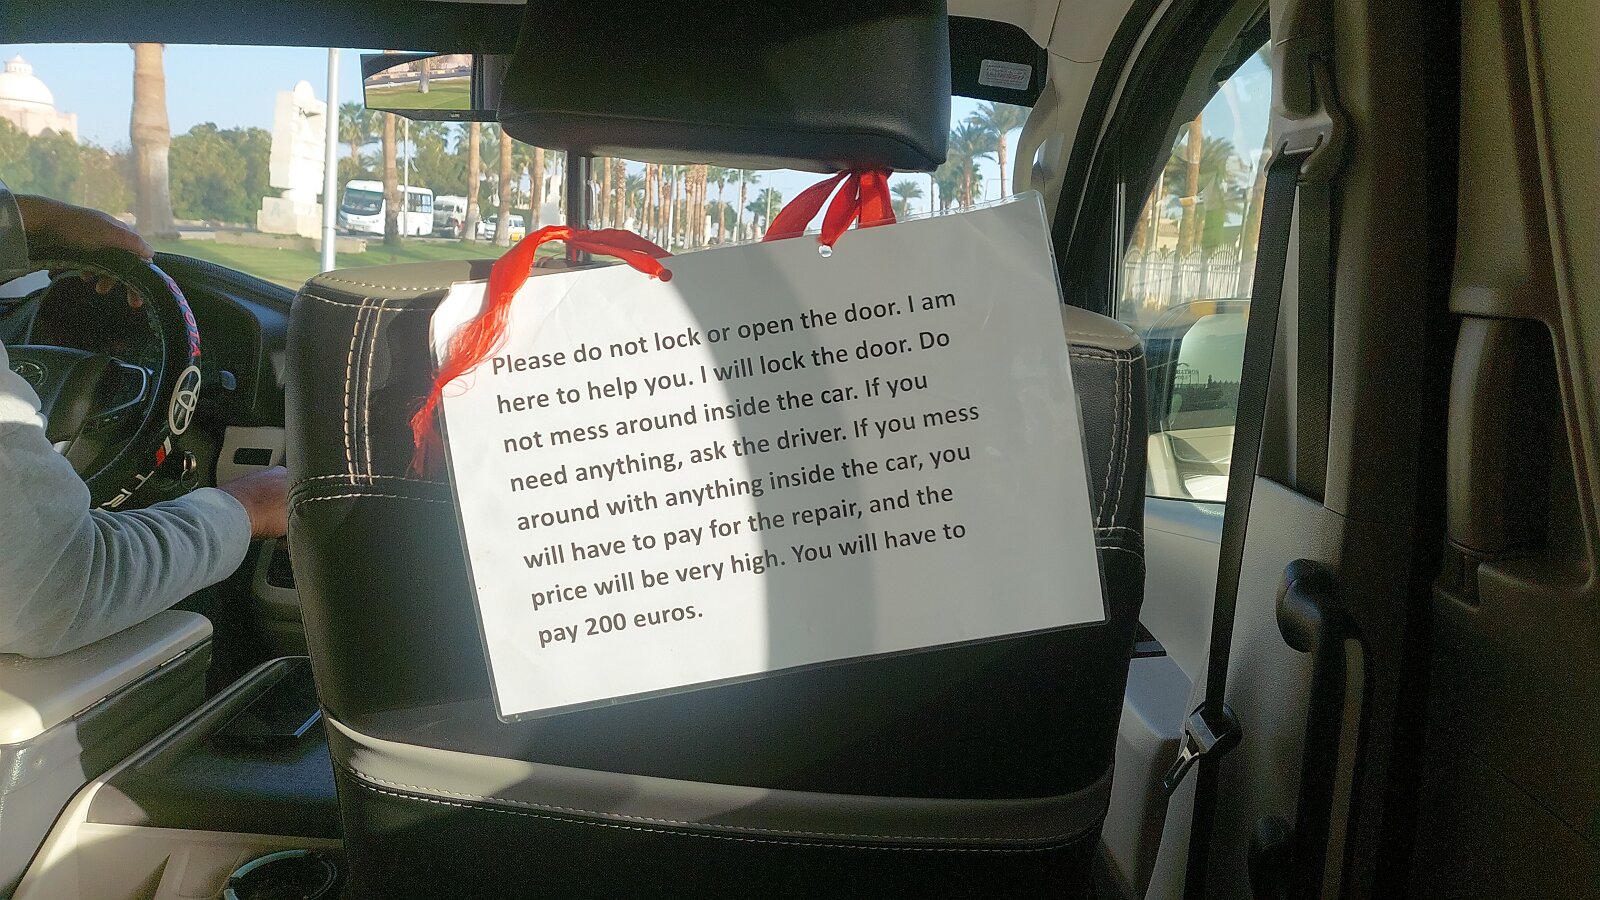 Please do not lock or open the door. I am
here to help you. I will lock the door. Do
not mess around inside the car. If you
need anything, ask the driver. If you mess
around with anything inside the car, you
will have to pay for the repair, and the
price will be very high. You will have to
pay 200 euros.